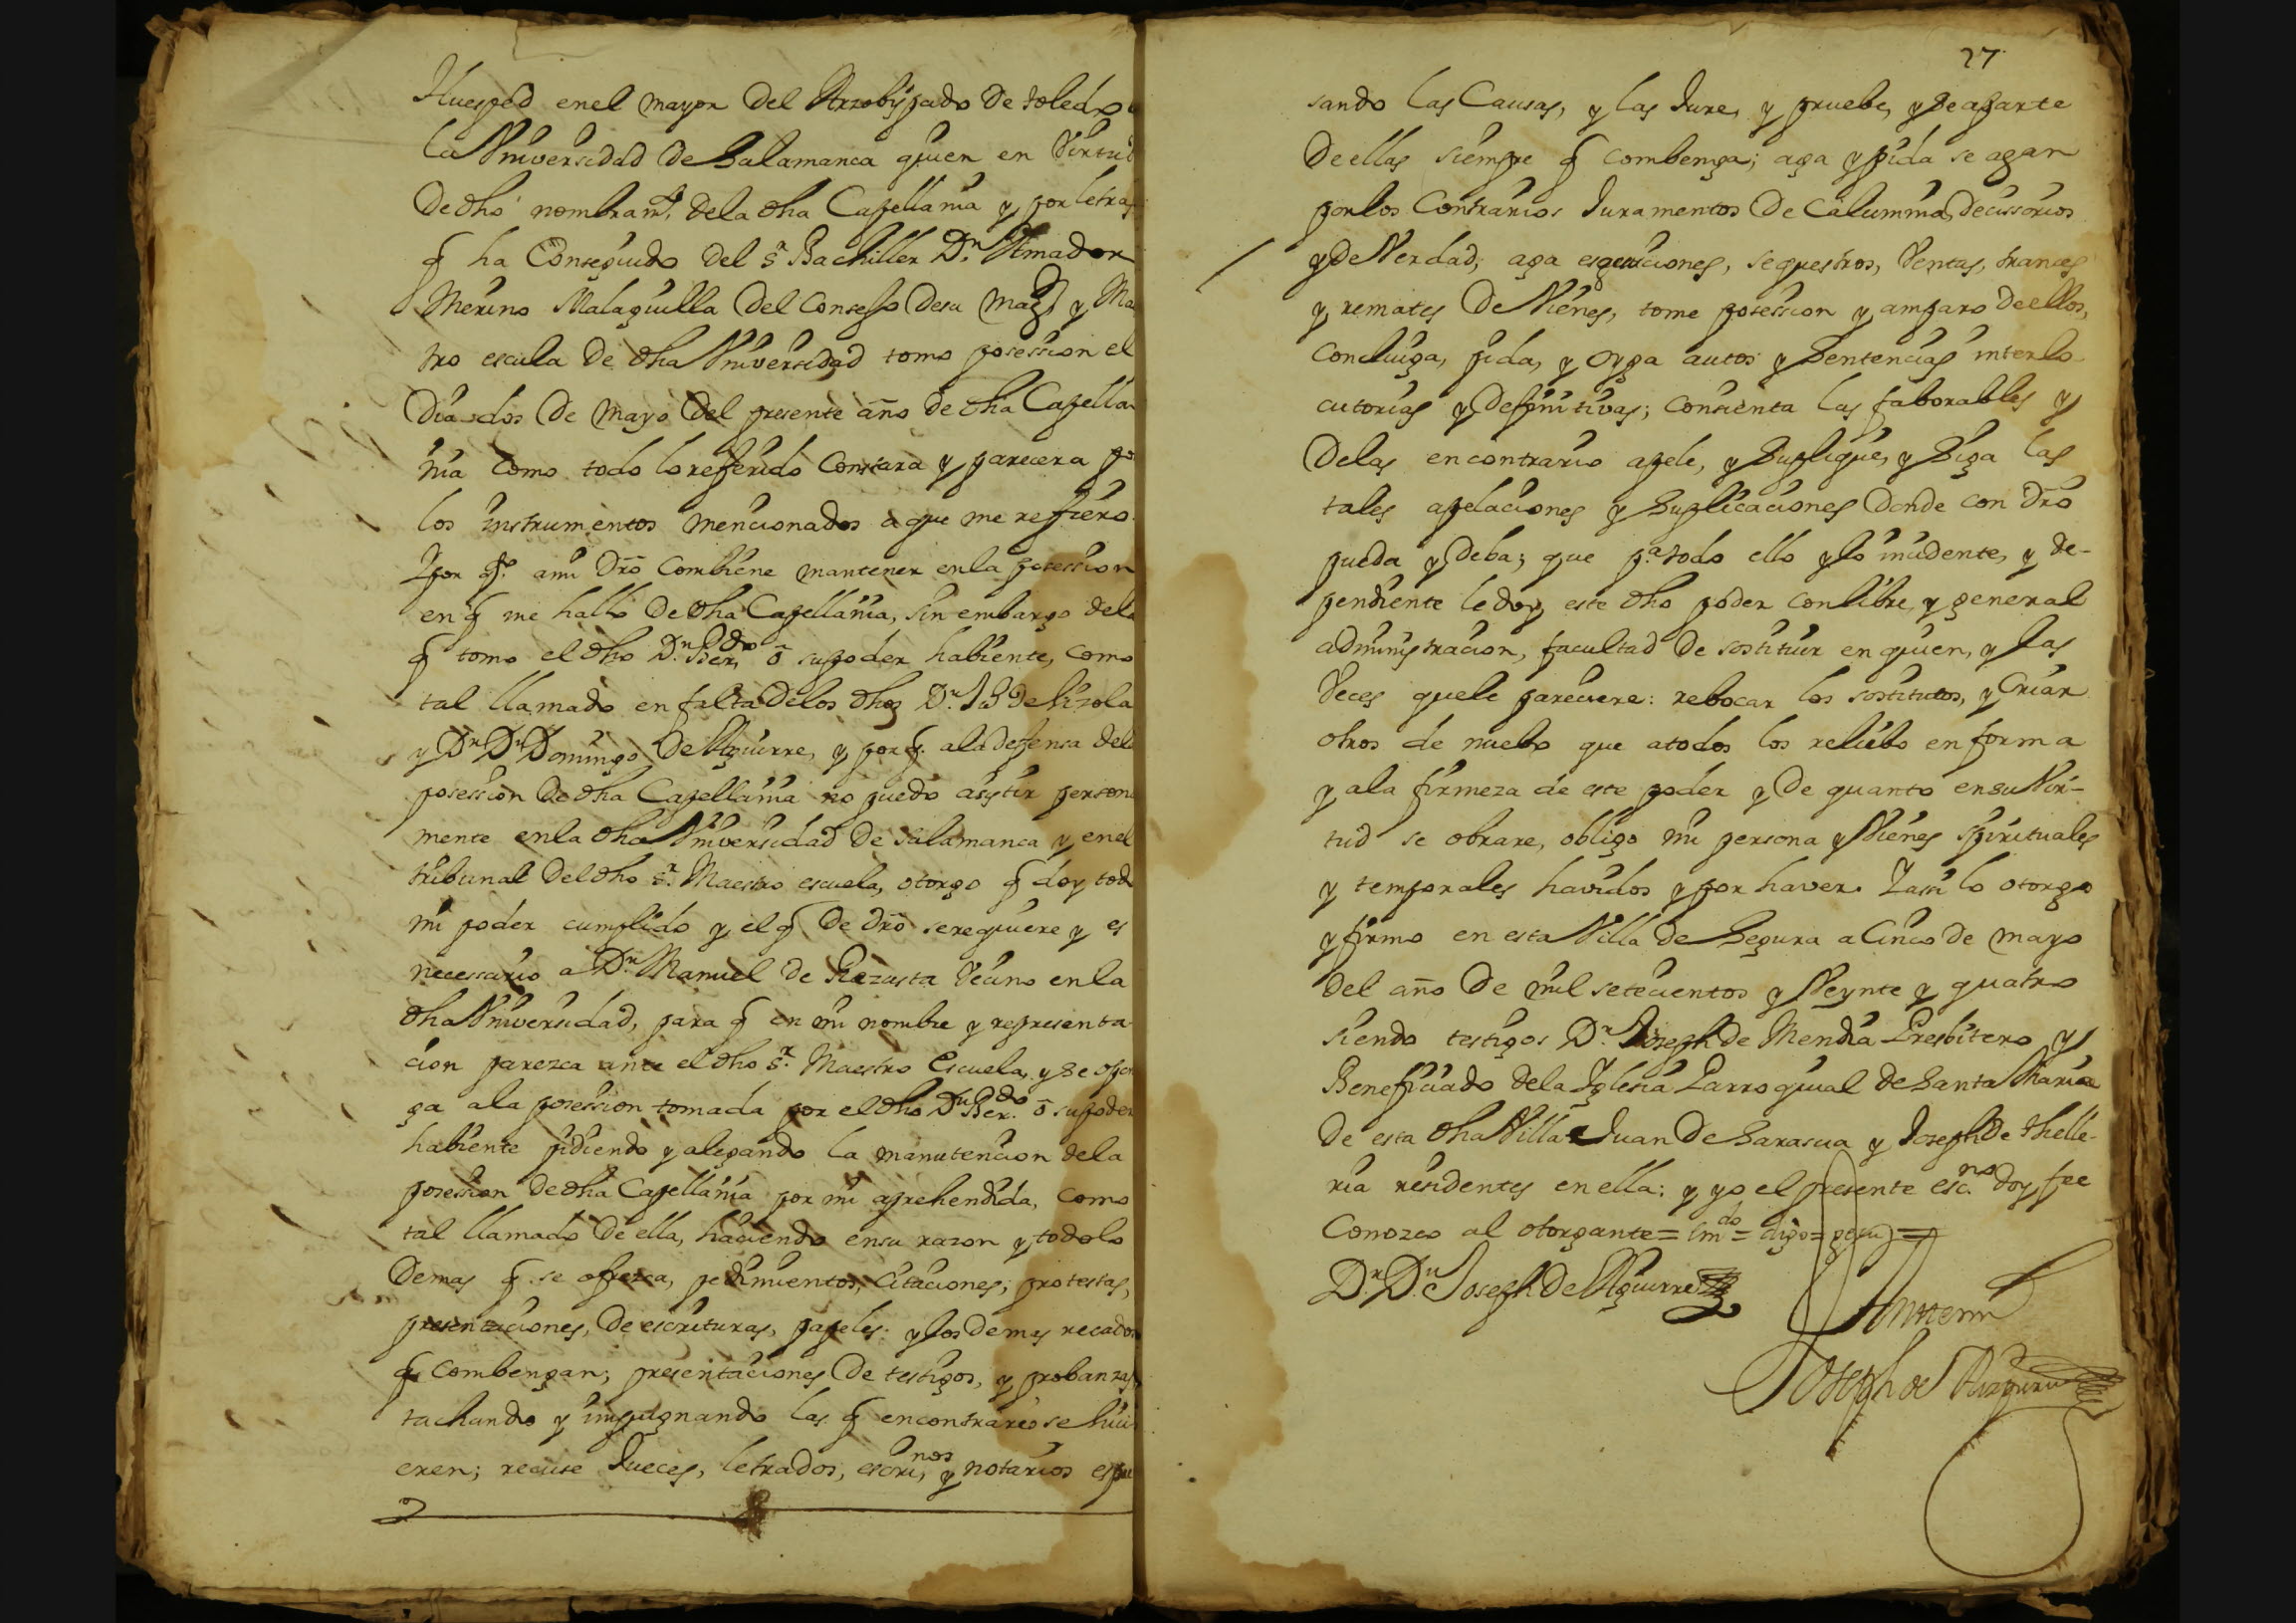 Huesped en el mayor del Arzobispado de toledo
la Vniversidad de Salamanca quien en Virtud
de dho nombram.to dela dha Capellania y por letras
q ha Conseguido del s.r Bachiller D.n Amador
Merino Malaguilla del Consejo de su Mag.d y Ma
tro escula de dha Vniversidad tomo posession el
dia dos de mayo del presente año de dha Capella
nia como todo lo referido Constara y parecera po
los instrumentos mencionados a que me refiero.
Y por q.to a mi dro combiene mantener enla posession
en q me hallo de dha Capellania, sin embargo dela
q tomo el dho D.n Ber.do ô su poder habiente, como
tal llamado en falta delos dhos D.n de Lizola
y D.r D.n Domingo de Aguirre, y por q. ala defensa dela
posession de dha Capellania no puedo asistir person
mente enla dha Vniversidad de Salamanca y en el
tribunal del dho s.r Maestro escuela, otorgo q doy todo
mi poder cumplido y el q de dro se requiere y es
necessario a D.n Manuel de Recusta Vecino en la
dha Vniversidad, para q en mi nombre y representa
cion parezca ante el dho s.r Maestro Escuela, y se opon
ga ala posession tomada por el dho D.n Ber.do ô su poder
habiente pidiendo y alegando la manutencion dela
posession de dha Capellania por mi aprehendida, como
tal llamado de ella, haciendo en su razon y todo lo
demas q se ofrezca, pedimientos, citaciones, protestas,
presentaciones, de escrituras, papeles y los demas recados
q combengan; presentaciones de testigos, y probanzas,
tachando y impugnando las q en contrario se hici
eren; recuse Jueces, letrados, escri.nos y notarios espre
27
sando las Causas, y las Jure, y pruebe, y se aparte
de ellas siempre q combenga; aga y pida se agan
por los Contrarios Juramentos de Calumnia, decissorios
y de Verdad; aga execuciones, sequestros, Ventas, trances
y remates de Vienes, tome posession y amparo de ellos,
concluiga, pida, y oyga autos y Sentencias interlo
cutorias y definitivas; consienta las faborables y
delas en contrario apele, y Suplique, y Siga las
tales apelaciones y Suplicaciones donde con dro
pueda y deba; que p.a todo ello y lo incidente, y de-
pendiente le doy este dho poder con libre, y general
administracion, facultad de sostituir en quien, y las
Veces que le pareciere: rebocar los sostitutos, y Criar
otros de nuebo que a todos los reliebo en forma
y ala firmeza de este poder y de quanto en su Vir-
tud se obrare, obligo mi persona y Vienes spirituales
y temporales havidos y por haver. Y asi lo otorgo
y firmo en esta Villa de Segura a Cinco de mayo
del año de mil setecientos y Veynte y quatro
siendo testigos D.n Joseph de Mendia Presbitero y
Beneficiado dela Iglesia Parroquial de Santa Maria
de esta dha Villa Juan de Sarasua y Joseph de thelle-
ria residentes en ella: y yo el presente esc.no doy fee
Conozco al otorgante = em.do =
D.r D.n Joseph de Aguirre
Ante mi
Joseph de Aizpuru